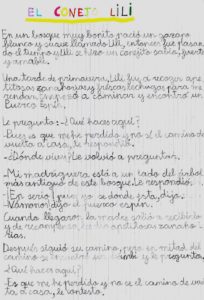 EL CONEJO LILI
En un bosque muy bonito nació un gazapo
blanco y suave llamado Lili, entonces fue pasan
do el tiempo y Lili se hizo un conejito sabio, fuerte
y amable.
Una tarde de primavera, Lili fue a recoger ape
titosas zanahorias y frescas lechugas para me
rendar. Empezó a caminar y encontró un
puerco espín.
Le preguntó: -¿Qué haces aquí?
-Pues es que me he perdido y no sé el camino de
vuelta a casa, le respondió.
-¿Dónde vives? Le volvió a preguntar.
-Mi madriguera está a un lado del árbol
más antiguo de este bosque. Le respondió.
-En serio, pues yo sé donde está, dijo.
-Vámonos, dijo el puerco espín.
Cuando llegaron la madre salió a recibirlo
y de recompensa, le dio apetitosas zanaho
rias.
Después siguió su camino, pero en mitad del
camino se encontró y le pregunta,
¿Qué haces aquí?
-Es que me he perdido y no sé el camino de vuel
ta a casa, le contestó.